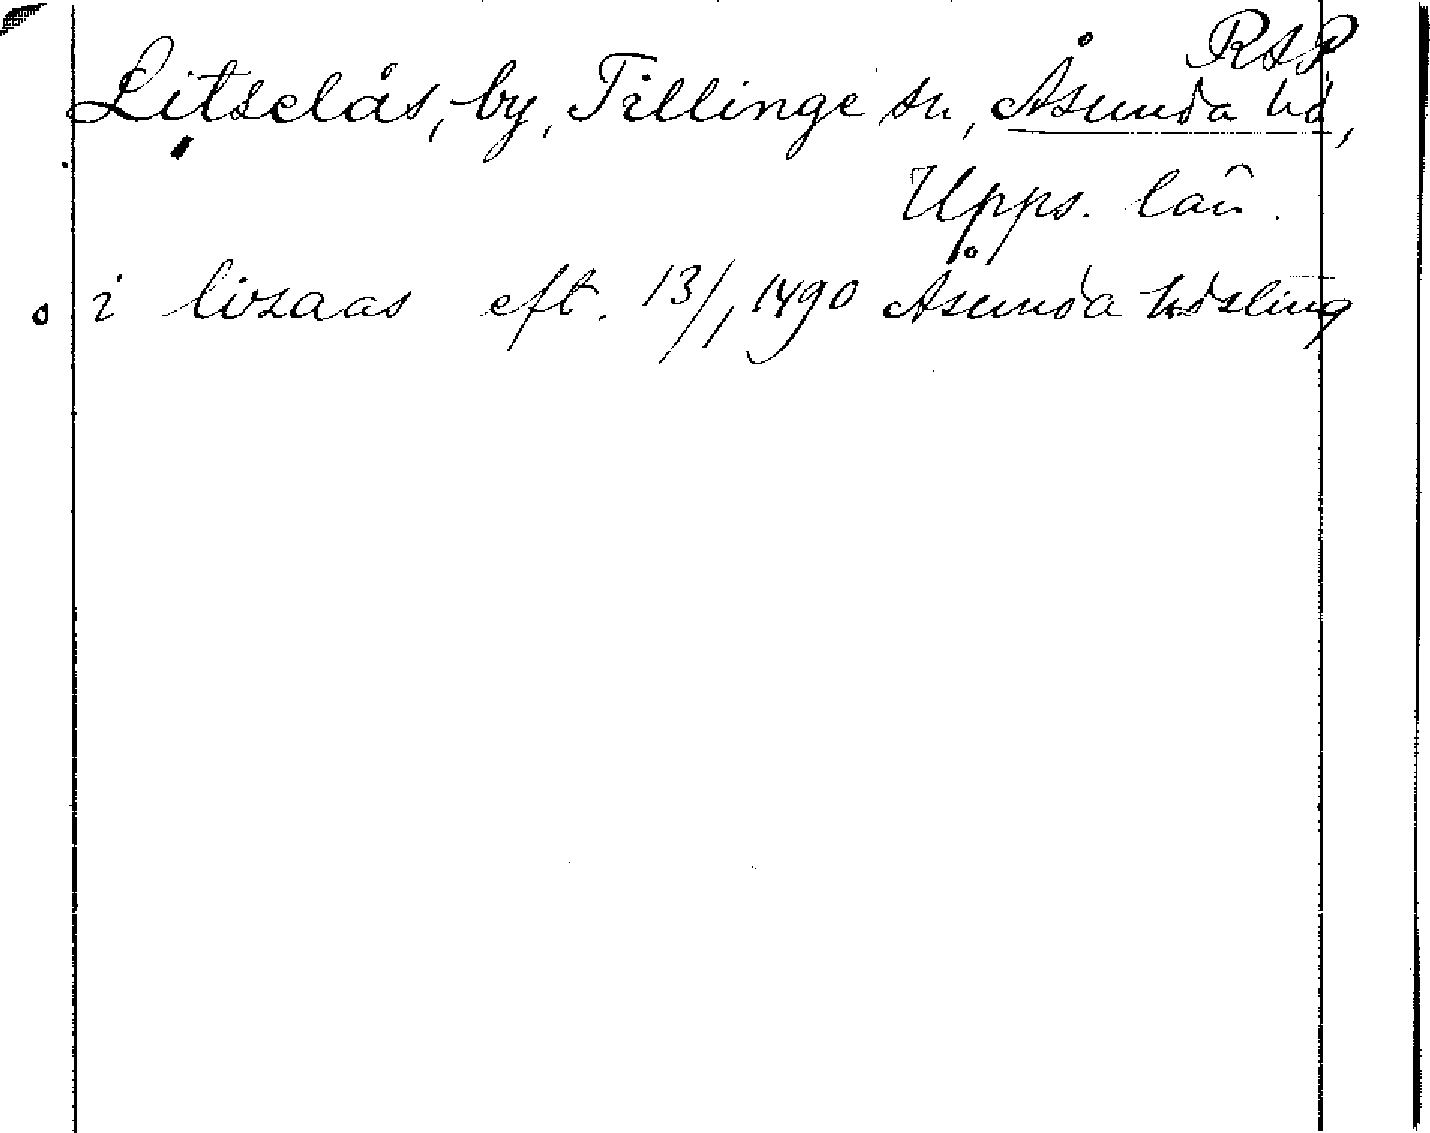 RAP
Litselås, by, Tillinge sn, Åsunda hd,
Upps. län.
i lizaas eft. 13/1 1490 Åsunda hdsting